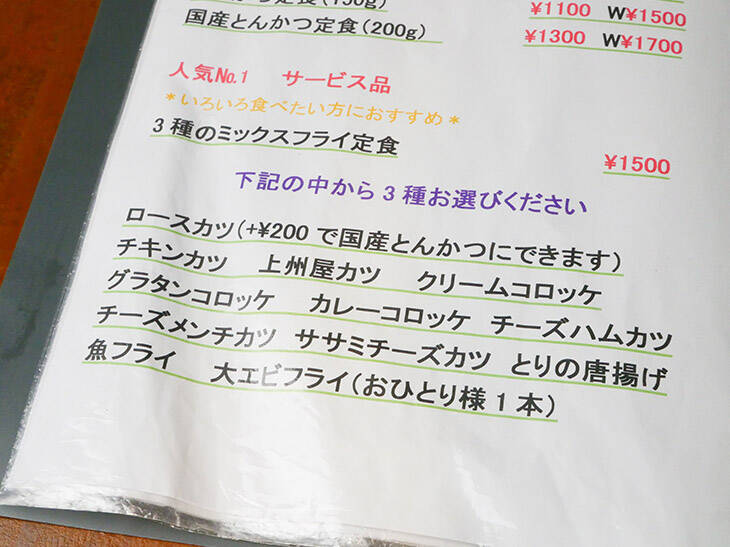 定食(150g) ¥1100 W¥1500
国産とんかつ定食(200g) ¥1300 W¥1700
人気№1 サービス品
*いろいろ食べたい方におすすめ*
3種のミックスフライ定食 ¥1500
下記の中から3種お選びください
ロースカツ(+¥200で国産とんかつにできます)
チキンカツ 上州屋カツ クリームコロッケ
グラタンコロッケ カレーコロッケ チーズハムカツ
チーズメンチカツ ササミチーズカツ とりの唐揚げ
魚フライ 大エビフライ(おひとり様1本)